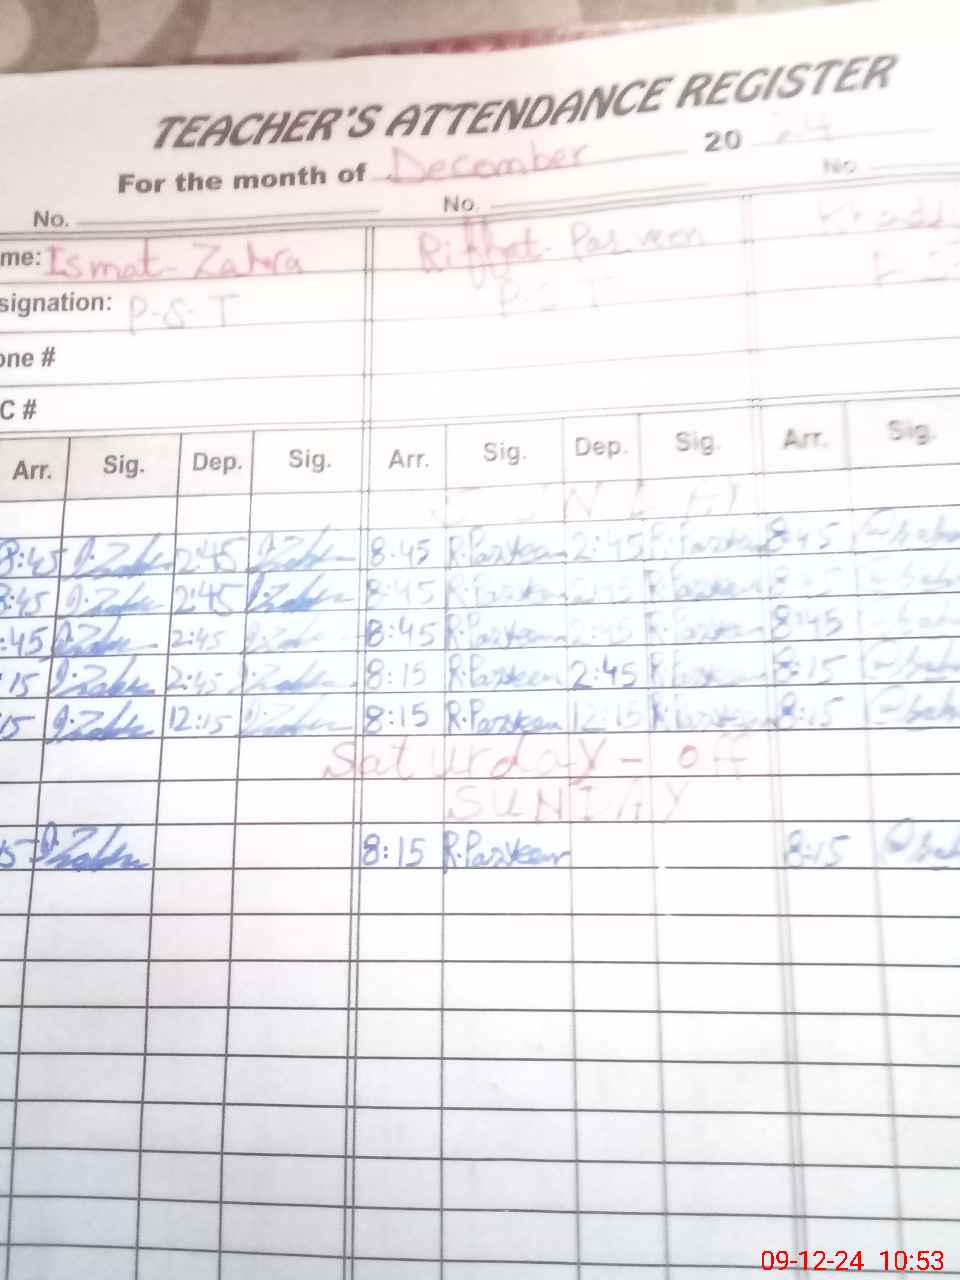 TEACHER'S ATTENDANCE REGISTER
For the month of December 20 24
No. No. No.
me: Ismat-Zahra Riffat-Parveen
signation: P-S-T P S T
one #
C #
Arr. Sig. Dep. Sig. Arr. Sig. Dep. Sig. Arr. Sig.
8:45 2:45 8:45 R.Parveen 2:45 R.Parveen 8:45
8:45 2:45 8:45 R.Parveen 2:45 R.Parveen
:45 2:45 8:45 R.Parveen 2:45 R.Parveen 8:45
15 2:45 8:15 R.Parveen 2:45 R.Parveen 8:15
15 12:15 8:15 R.Parveen 12:15 R.Parveen 8:15
Saturday - off
SUNDAY
5 8:15 R.Parveen 8:15
09-12-24 10:53